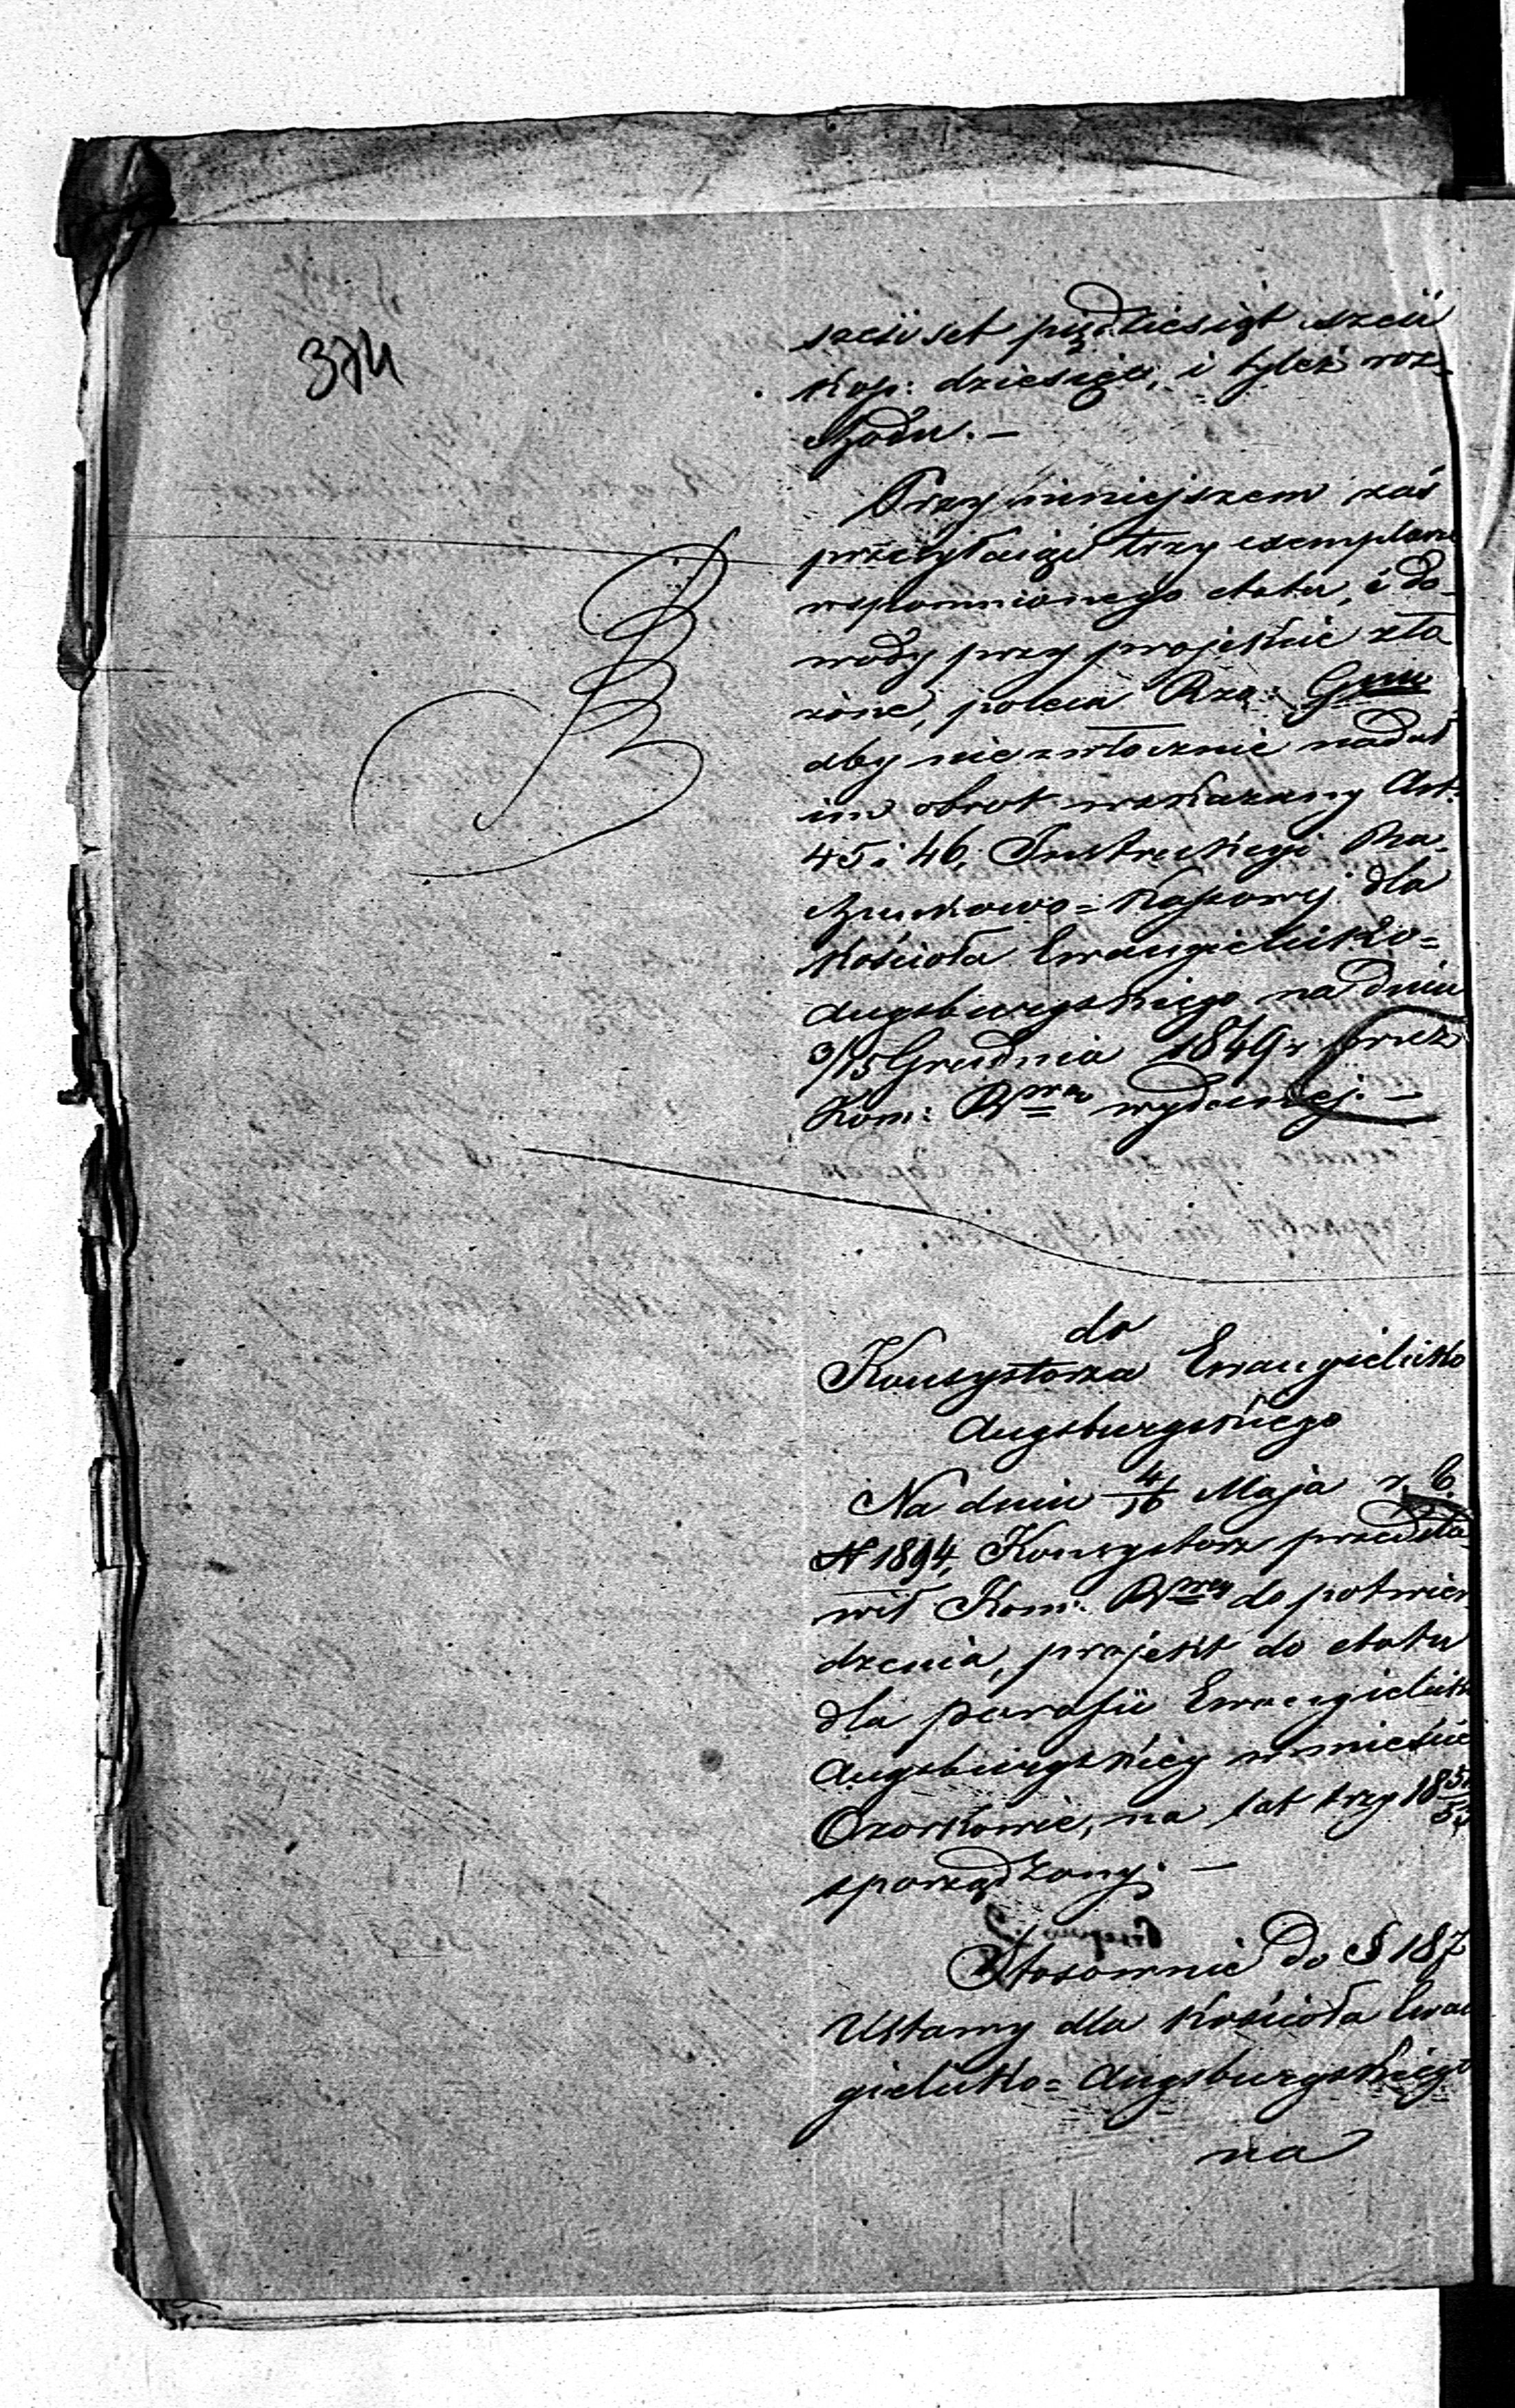 374
sześćset pięćdziesiąt sześć
Kop: dziesięć, i tyleż roz-
chodu. —
Przy niniejszem zaś
przesyłając trzy exemplarze
wspomnionego etatu, i do-
wody przy projekcie zło
żone, poleca Rzą: Gmu
aby niezwłocznie nadał
im obrot wskazany Art:
45 i 46, Instrukcyi Ra-
chunkowo=Kassowej dla
Kościoła Ewangielicko=
Augsburgskiego na dniu
3/15 Grudnia 1849 r. przez
Kom: Rwą wydanej. —
do
Konsystorza Ewangielicko
Augsburgskiego
Na dniu 4/16 Maja r. b.
N 1894, Konsystorz przedsta
wił Kom: Rwey do potwier
dzenia, projekt do etatu
dla parafii Ewangielicko
Augsburgskiey w mieście
Ozorkowie, na lat trzy 18
sporządzony. —
Stosownie do § 187
Ustawy dla Kościoła Ewan
gielicko=Augsburgskiego
na